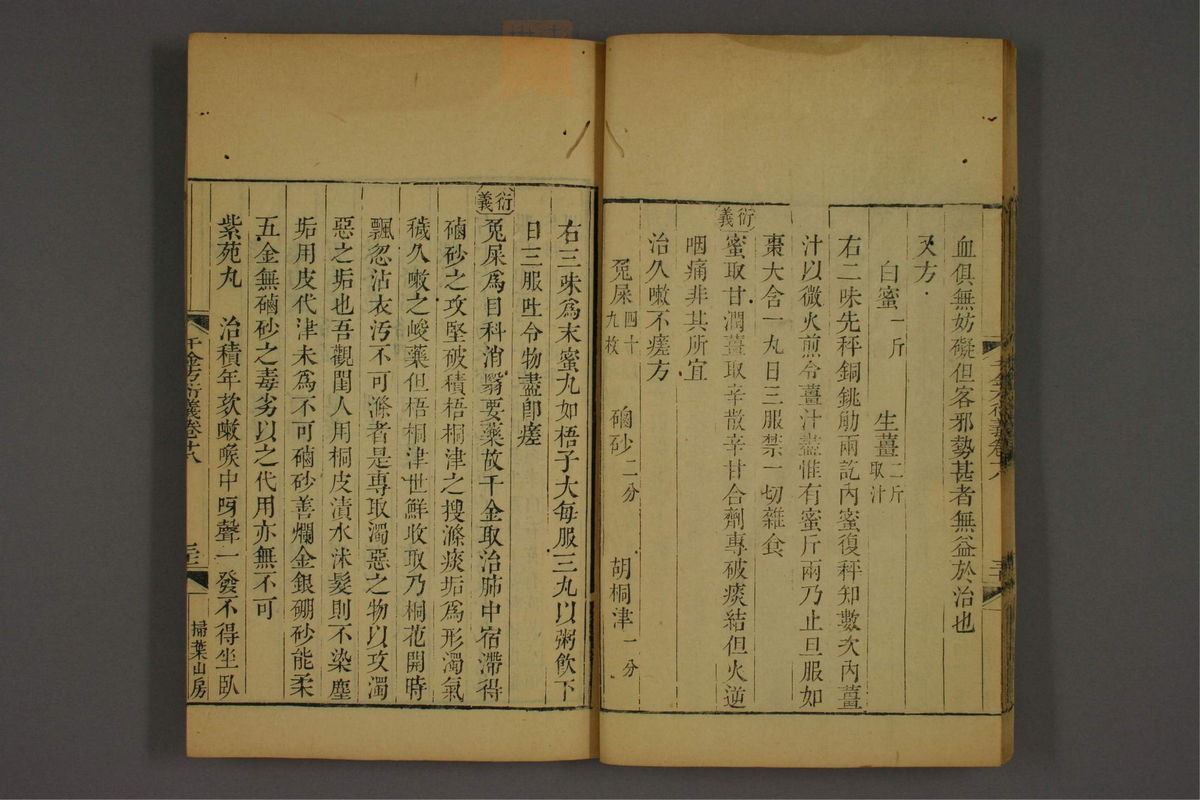 血俱無妨礙但客邪勢甚者無益於治也
又方
白蜜一斤 生薑二斤取汁
右二味先秤銅銚觔兩訖內蜜復秤知數次內薑
汁以微火煎令薑汁盡惟有蜜斤兩乃止旦服如
棗大含一丸日三服禁一切雜食
衍義
蜜取甘潤薑取辛散辛甘合劑專破痰結但火逆
咽痛非其所宜
治久嗽不瘥方
兔屎四十九枚 硇砂二分 胡桐津一分
右三味爲末蜜丸如梧子大每服三丸以粥飲下
日三服吐令物盡卽瘥
衍義
兔屎爲目科消翳要藥故千金取治肺中宿滯得
硇砂之攻堅破積梧桐津之搜滌痰垢爲形濁氣
穢久嗽之峻藥但梧桐津世鮮收取乃桐花開時
飄忽沾衣汚不可滌者是專取濁惡之物以攻濁
惡之垢也吾觀閨人用桐皮漬水沐髮則不染塵
垢用皮代津未爲不可硇砂善爛金銀硼砂能柔
五金無硇砂之毒劣以之代用亦無不可
紫苑丸 治積年欬嗽喉中呀聲一發不得坐臥
千金方衍義卷十八
掃葉山房